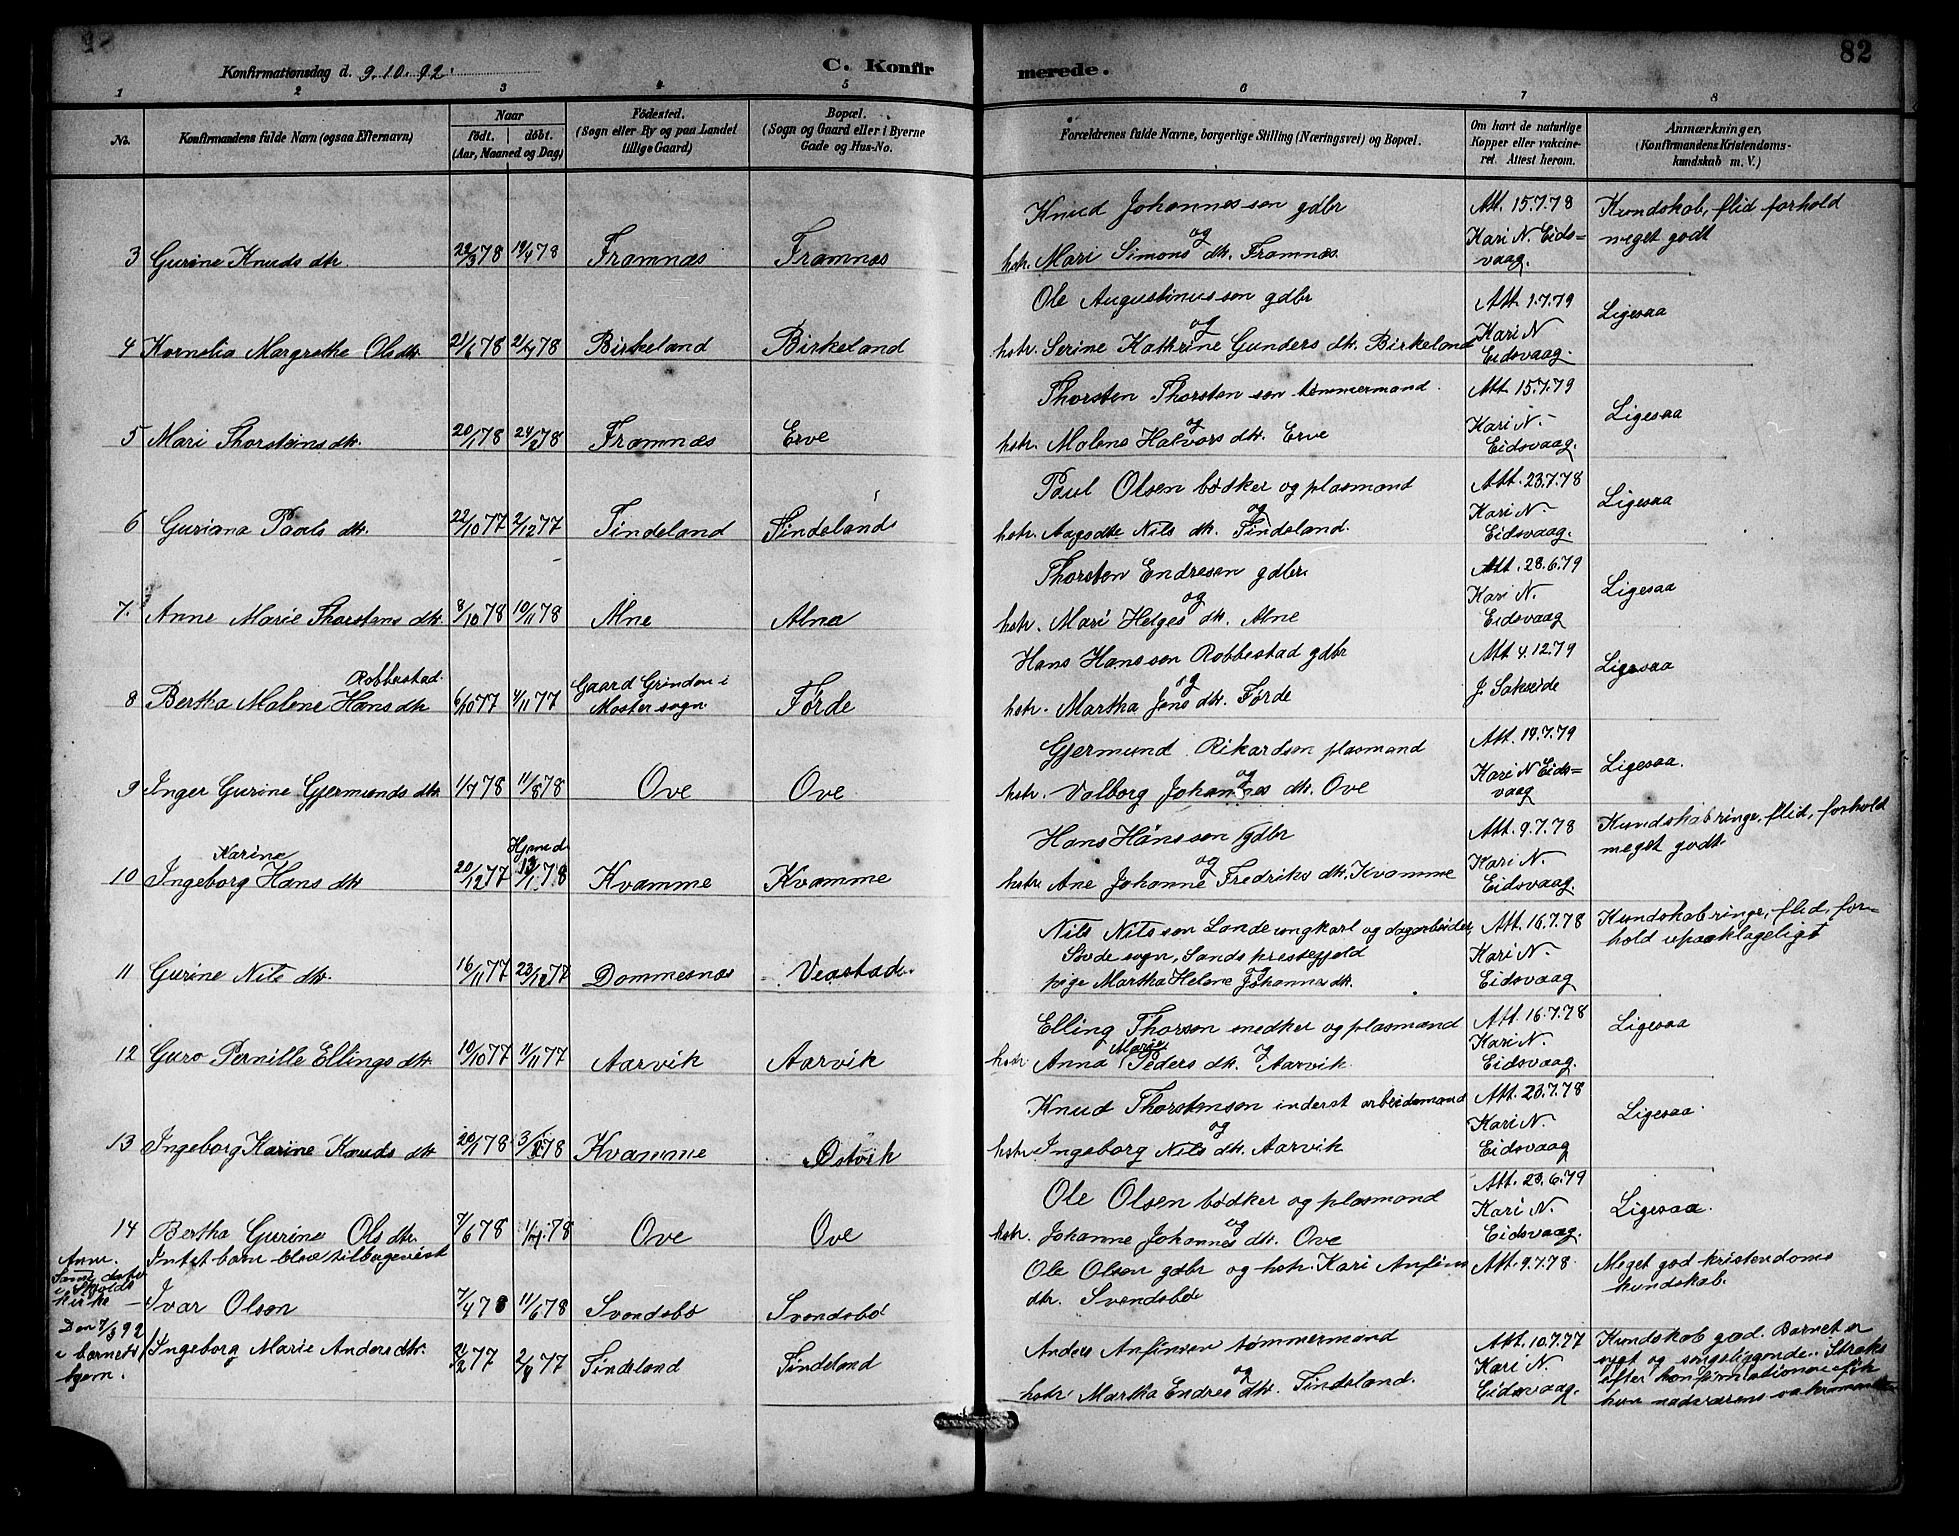 82
Konfirmationsdag d. 9.10.92.
C. Konfirmerede.
1 2 3 4 5 6 7 8
No. Konfirmandens fulde Navn (ogsaa Efternavn)
Naar født. døbt. (Aar, Maaned og Dag)
Fødested. (Sogn eller By og paa Landet tillige Gaard)
Bopæl. (Sogn og Gaard eller i Byerne Gade og Hus-No.
Forældrenes fulde Navne, borgerlige Stilling (Næringsvei) og Bopæl.
Om havt de naturlige Kopper eller vakcineret. Attest herom.
Anmærkninger, (Konfirmandens Kristendomskundskab m. V.)
Knud Johannessen gdbr Att. 15.7.78 Kundskab, flid forhold
og Kari N. Eids= meget godt
3 Gurine Knuds dtr. 22/3 78 19/4 78 Framnæs Framnæs hstr. Mari Simons dtr. Framnæs vaag.
Ole Augustinussen gdbr Att. 1.7.79 Ligesaa
og Kari N
4 Kornelia Margrethe Ols dtr. 78 78 Birkeland Birkeland hstr. Serine Kathrine Gunders dtr. Birkeland Eidsvaag.
Thorsten Thorstensen tømmermand Att. 15.7.79 Ligesaa
og Kari N.
5 Mari Thorsteins dtr. 20/1 78 24/2 78 Framnæs Erve hstr. Malene Halvors dtr. Erve Eidsvaag.
Paul Olsen bødker og plasmand Att. 23.7.78 Ligesaa
og Kari N.
6 Guriana Pauls dtr. 22/10 77 2/12 77 Tindeland Tindeland hstr. Aagodte Nils dtr. Tindeland. Eidsvaag.
Thorsten Endresen gdbr. Att. 28.6.79 Ligesaa
og Kari N.
7. Anne Marie Thorstens dtr. 8/10 78 10/11 78 Alne Alne hstr. Mari Helges dtr. Alne Eidsvaag
Hans Hanssen Robbestad gdbr Att 4.12.79 Ligesaa
Robbestad Gaard Grinden i og
8 Bertha Malene Hans dtr 6/10 77 4/11 77 Moster sogn Førde hstr. Martha Jens dtr. Førde J. Sakseide
Gjermund Rikardsen plasmand Att. 14.7.79 Ligesaa.
og Kari N Eids=
9 Inger Gurine Gjermunds dtr 1/7 78 11/8 78 Ove Ove hstr. Valborg Johannes dtr. Ove vaag
Hans Hanssen gdbr Att. 9.7.78 Kundskab ringe, flid, forhold
Karine Hjemd. og Kari N. meget godt.
10 Ingeborg Hans dtr 20/12 77 78 Kvamme Kvamme hstr Ane Johanne Fredriks dtr. Kvamme Eidsvaag.
Nils Nilssen Lande ungkarl og dagarbeider, Att. 16.7.78 Kundskab ringe, flid, for-
Søvde sogn, Sands prestegjeld Kari N. hold upaaklageligt
11 Gurine Nils dtr. 16/11 77 23/12 77 Dommesnæs Veastad. pige Martha Helene Johannes dtr. Eidsvaag
Elling Thorsen snedker og plasmand Att. 16.7.78 Ligesaa
Marie Kari N.
12 Guro Pernille Ellings dtr 10/10 77 11/11 77 Aarvik Aarvik hstr Anna Peders dtr. og Aarvik Eidsvaag.
Knud Thorstensen inderst arbeidsmand Att. 23.7.78 Ligesaa.
og Kari N.
13 Ingeborg Karine Knuds dtr 20/1 78 78 Kvamme Østvik hstr Ingeborg Nils dtr. Aarvik Eidsvaag
Ole Olsen bødker og plasmand Att. 23.6.79 Ligesaa.
og Kari N.
14 Bertha Gurine Ols dtr. 7/6 78 78 Ove Ove hstr. Johanne Johannes dtr. Ove Eidsvaag.
Anm. Intet barn blev tilbagevist
Samme dato i Skjolds kirke — Ivar Olsen 7/4 78 11/6 78 Svendsbø Svendsbø Ole Olsen gdbr og hstr. Kari Anfins dtr. Svendsbø Att. 9.7.78 Meget god kristendoms kundskab.
Den 7/3 92 i barnets hjem. Ingeborg Marie Anders dtr. 77 77 Tindeland Tindeland Anders Anfinsen tømmermand
og hstr. Martha Endres dtr. Tindeland. Att. 10.7.77 Kari N. Eidsvaag.
Kundskab god. Barnet er
sygt og sengeliggende. Straks
efter konfirmationen fik
hun nadverens sakramente